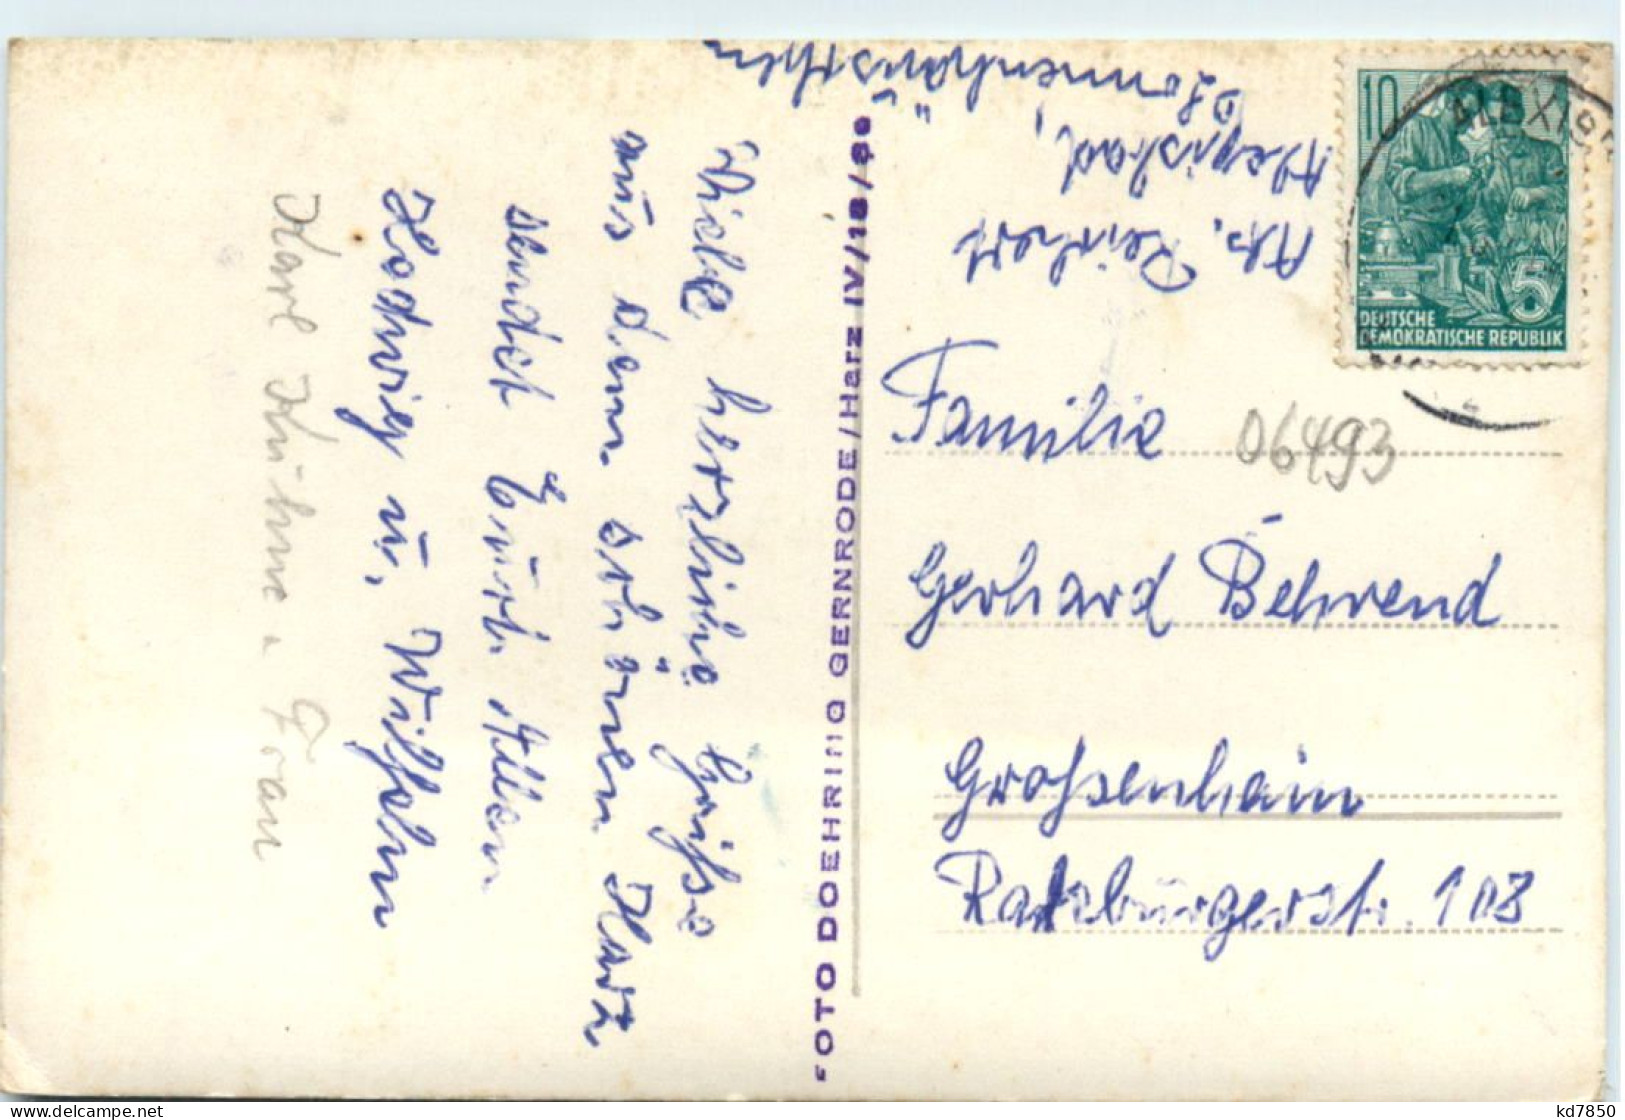 Viele herzliche Grüße
aus dem schönen Harz
sendet Euch Allen
Hedwig u. Wilhelm
Karl Kühne u Frau
FOTO DOEHRING GERNRODE/Harz IV/18/89
Abs. Reichert
Alexisbad,
Sonnenhäuschen
10
5
DEUTSCHE
DEMOKRATISCHE REPUBLIK
ALEXISB
Familie
06493
Gerhard Behrend
Großenhain
Radeburgerstr. 108
kd7850